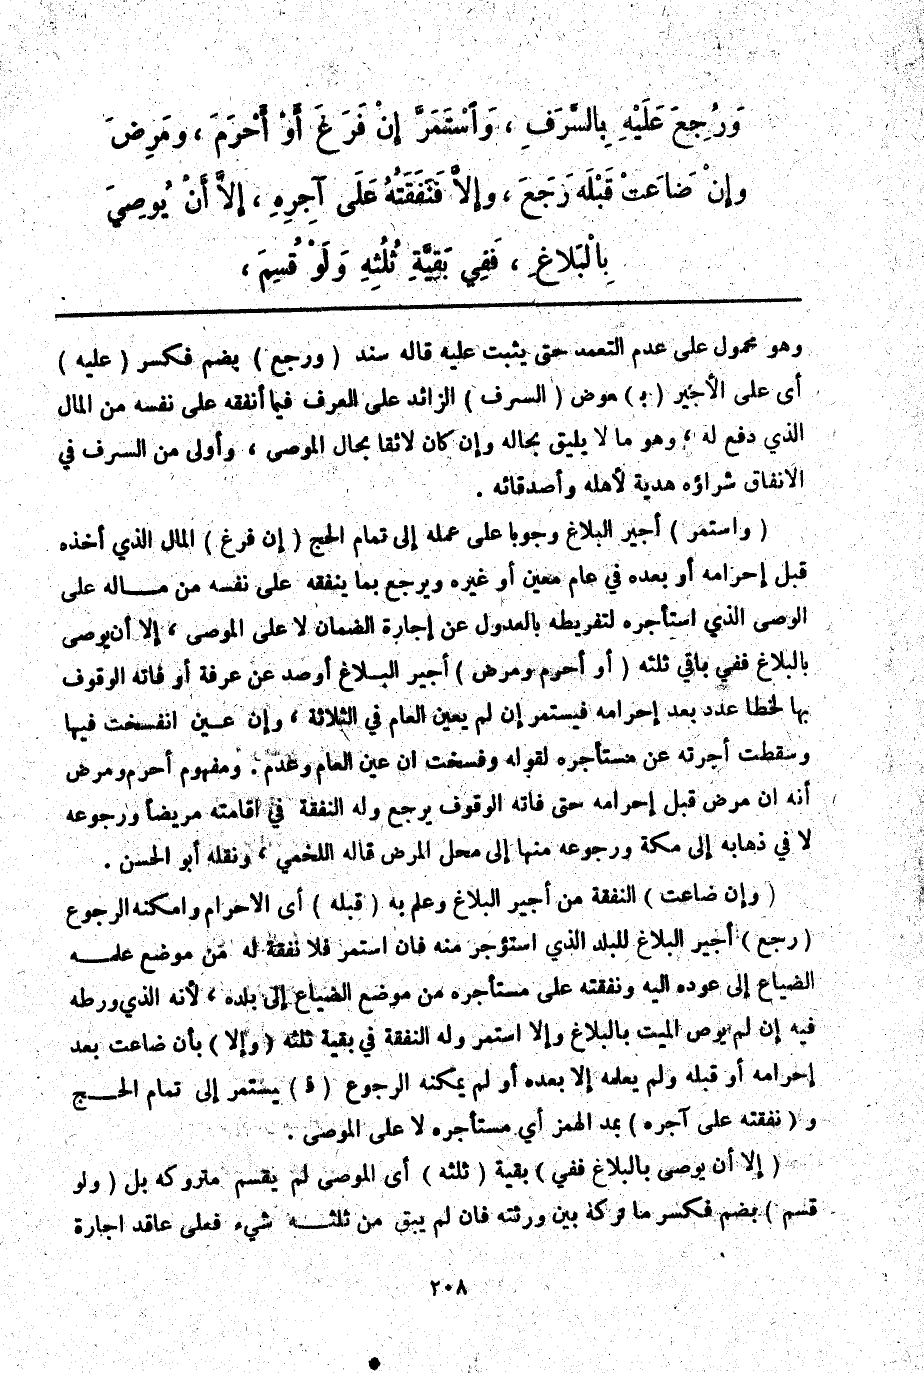 وَرُجِعَ عَلَيْهِ بِالسَّرَفِ ، وَاسْتَمَرَّ إِنْ فَرَغَ أَوْ أَحْرَمَ ، ومَرِضَ
وإِنْ ضَاعَتْ قَبْلَه رَجَعَ ، وإِلاَّ فَنَفَقَتُهُ عَلَى آجِرِهِ ، إِلاَّ أَنْ يُوصِيَ
بِالْبَلاغِ ، فَفِي بَقِيَّةِ ثُلُثِهِ وَلَوْ قُسِمَ ،
وهو محمول على عدم التعمد حتى يثبت عليه قاله سند ( ورجع ) بضم فكسر ( عليه )
أى على الأجير ( بـ ) عوض ( السرف ) الزائد على العرف فيما أنفقه على نفسه من المال
الذي دفع له ، وهو ما لا يليق بحاله وإن كان لائقا بحال الموصى ، وأولى من السرف في
الانفاق شراؤه هدية لأهله وأصدقائه .
( واستمر ) أجير البلاغ وجوبا على عمله إلى تمام الحج ( إن فرغ ) المال الذي أخذه
قبل إحرامه أو بعده في عام معين أو غيره ويرجع بما ينفقه على نفسه من مـــاله على
الوصى الذي استأجره لتفريطه بالعدول عن إجارة الضمان لا على الموصى ، إلا أن يوصى
بالبلاغ ففي باقي ثلثه ( أو أحرم ومرض ) أجير البـلاغ أوصد عن عرفة أو فاته الوقوف
بها لخطا عدد بعد إحرامه فيستمر إن لم يعين العام في الثلاثة ، وإن عـين انفسخت فيها
وسقطت أجرته عن مستأجره لقوله وفسخت ان عين العام وعدم . ومفهوم أحرم ومرض
أنه ان مرض قبل إحرامه حتى فاته الوقوف يرجع وله النفقة في اقامته مريضا ورجوعه
لا في ذهابه إلى مكة ورجوعه منها إلى محل المرض قاله اللخمي ، ونقله أبو الحسن .
( وإن ضاعت ) النفقة من أجير البلاغ وعلم به ( قبله ) أى الاحرام وامكنه الرجوع
( رجع ) أجير البلاغ للبلد الذي استؤجر منه فان استمر فلا نفقة له من موضع علمـــه
الضياع إلى عوده اليه ونفقته على مستأجره من موضع الضياع إلى بلده ، لأنه الذي ورطه
فيه إن لم يوص الميت بالبلاغ وإلا استمر وله النفقة في بقية ثلثه ( وإلا ) بأن ضاعت بعد
إحرامه أو قبله ولم يعلمه إلا بعده أو لم يمكنه الرجوع ( فـ ) يستمر إلى تمام الحـــج
و ( نفقته على آجره ) بمد الهمز أي مستأجره لا على الموصى .
( إلا أن يوصى بالبلاغ ففي ) بقية ( ثلثه ) أى الموصى لم يقسم متروكه بل ( ولو
قسم ) بضم فكسر ما تركه بين ورثته فان لم يبق من ثلثـــه شيء فعلى عاقد اجارة
٢٠٨